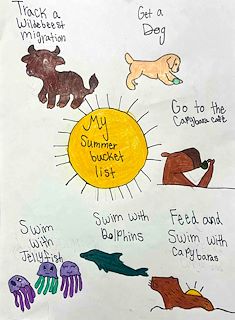 Track a
Wildebeest
migration
Get a
Dog
My
Summer
bucket
list
Go to the
Capybara cafe
Swim
with
Jellyfish
Swim with
Dolphins
Feed and
Swim with
capybaras